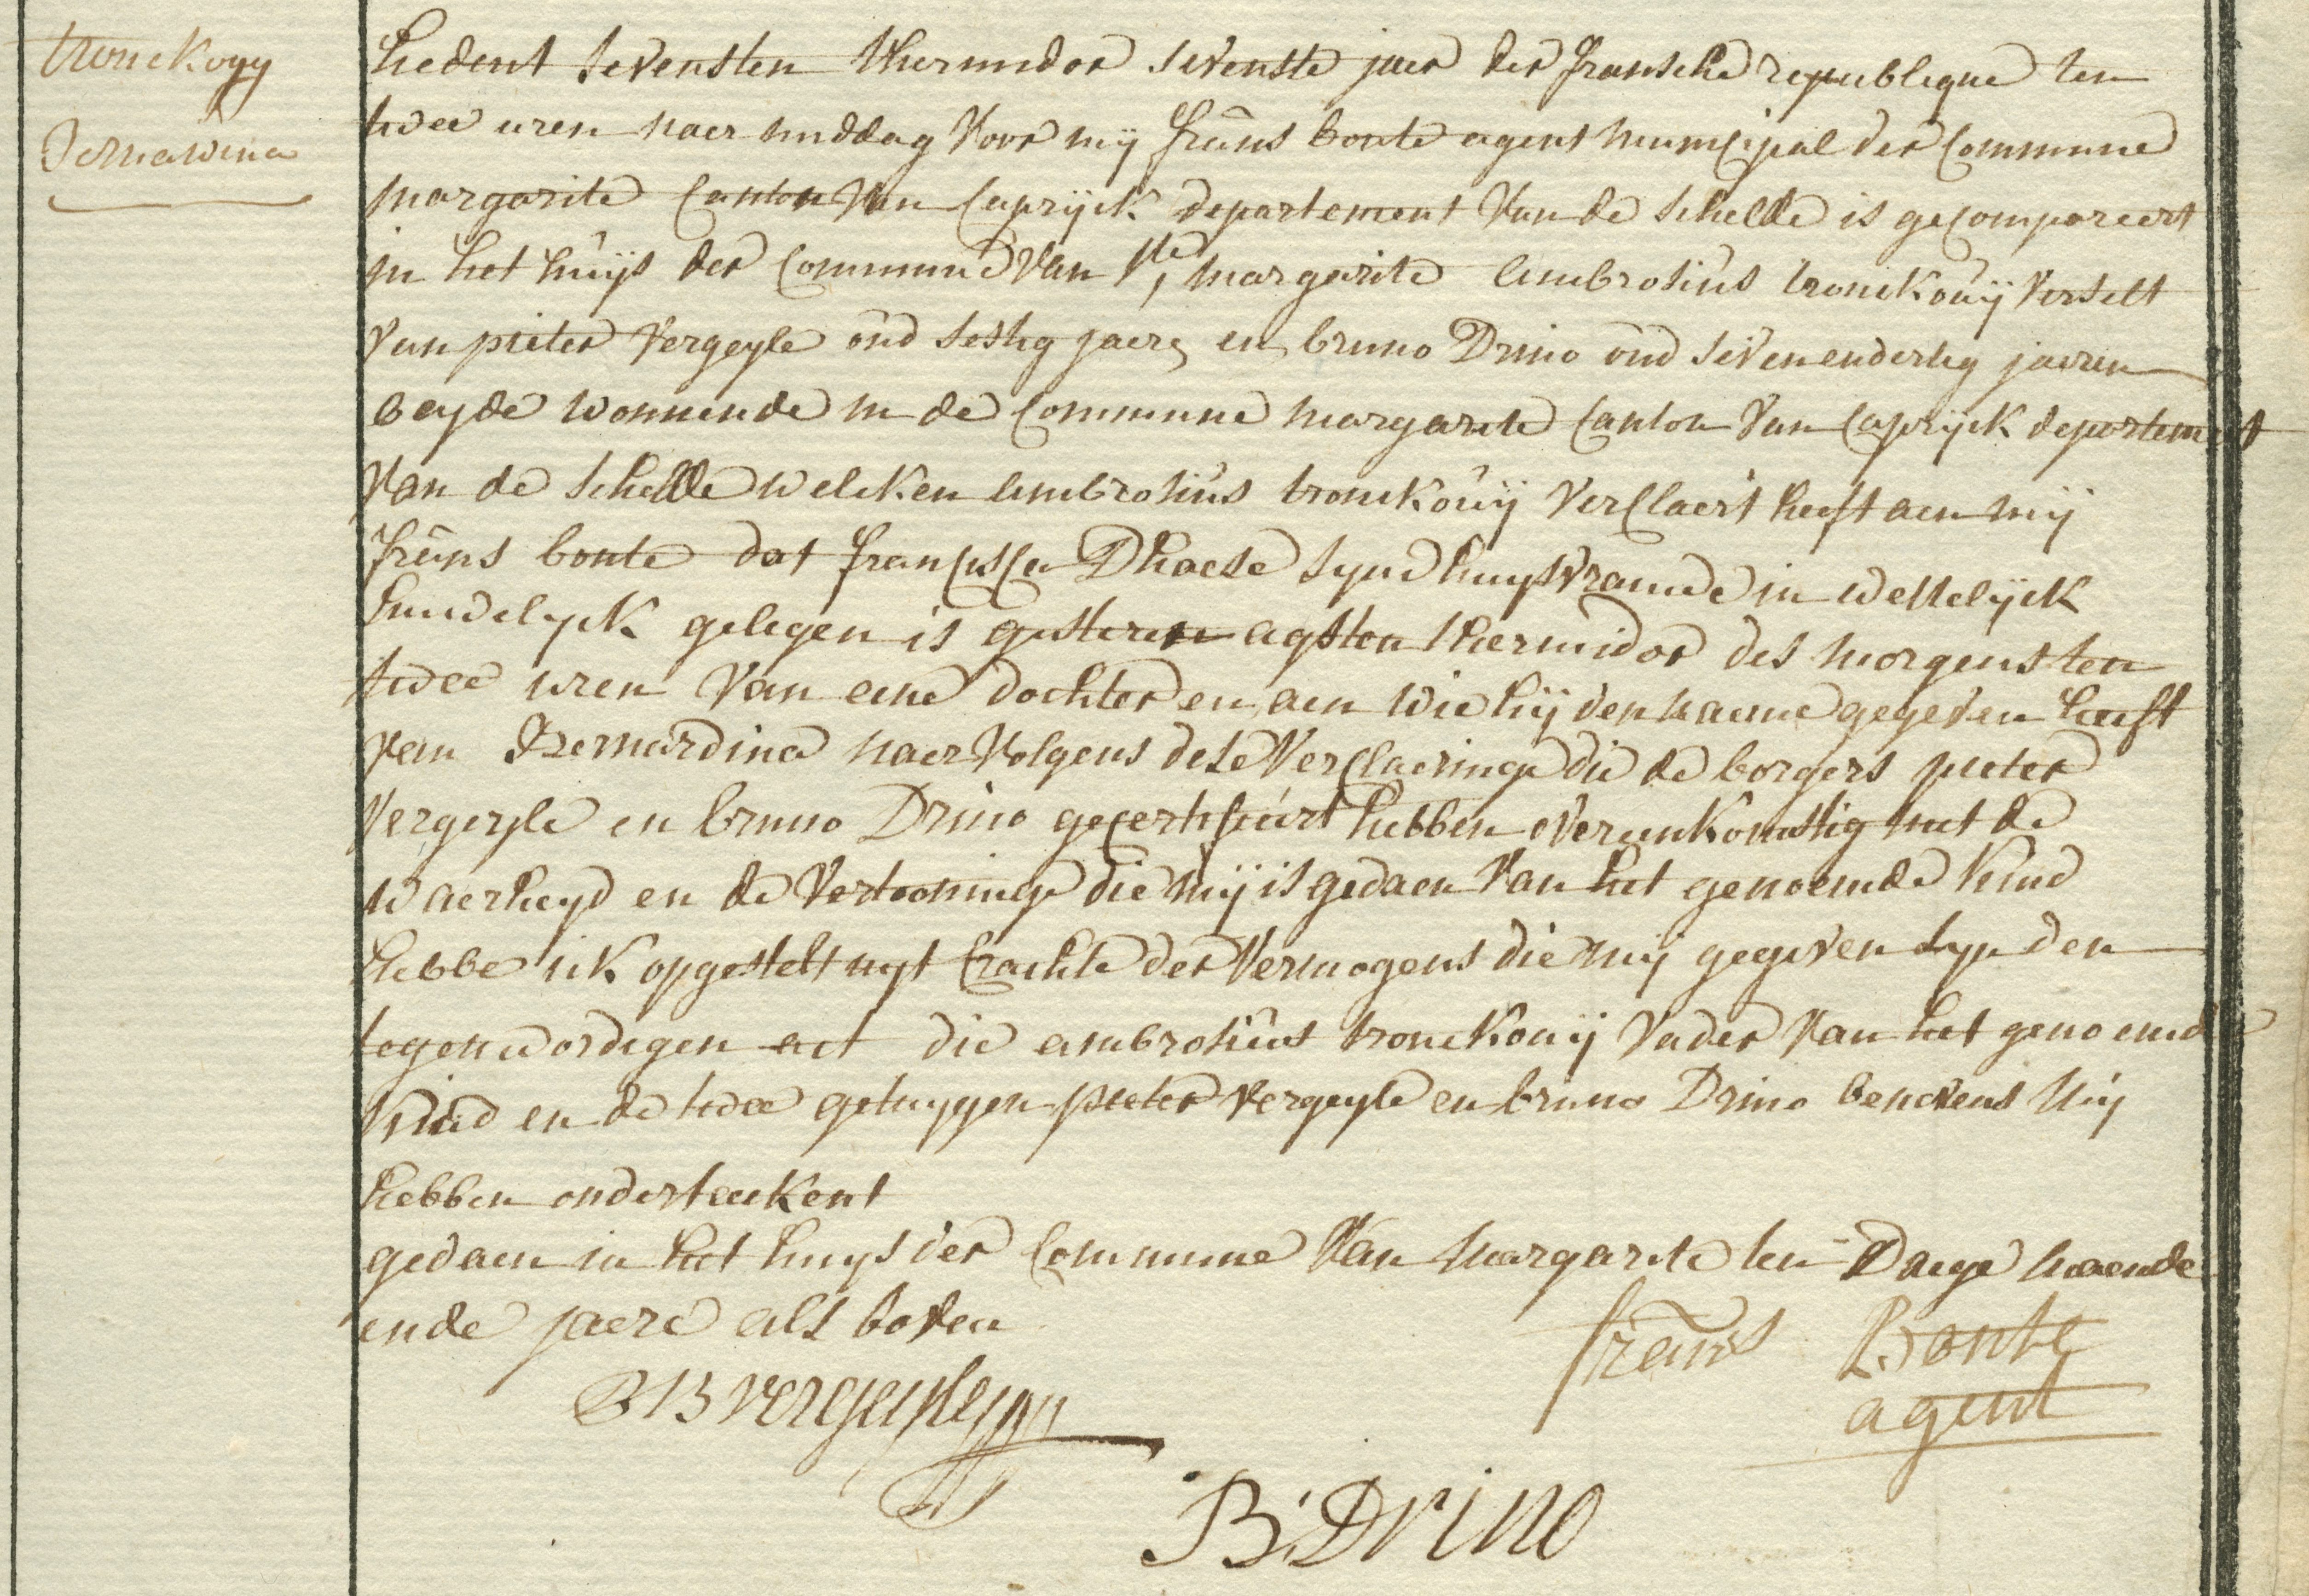 tronckoÿy
Bernardina
hedent sevensten thermidor sevenste jaer der fransche republique ten
twee uren naer middag voor mij frans bonte agent municipal der commune
margarite canton van caprijck departement van de schelde is gecompareert
in het huijs der commune van Ste margarite ambrosius tronckouij verselt
van pieter vergeyle oud sestig jaere en bruno Drino oud sevenendertig jaeren
beyde wonnende in de commune margarite canton van caprijck departement
van de schelde welcken ambrosius tronckouij verclaert heeft aen mij
frans bonte dat francisca Dhaese syne huysvrauwe in wettelijck
huwelyck gelegen is gisteren agsten thermidor des morgens ten
twee uren van eene dochter en aen wie hij den naeme gegeven heeft
van Bernardina naer volgens dese verclaeringe die de borgers pieter
vergeyle en bruno Drino gecertifieert hebben overeenkomstig met de
waerheyd en de vertooninge die mij is gedaen van het genoemde kind
hebbe ick opgestelt uyt crachte der vermogens die mij gegeven syn den
tegenwordigen act die ambrosius tronckouij vader van het genoemde
kind en de twee getuygen pieter vergeyle en bruno Drino benevens mij
hebben onderteekent
gedaen in het huys der commune van margarite ten Daege maende
ende jaere als boven
frans Bonte
agent
vergeyle
B: Drino